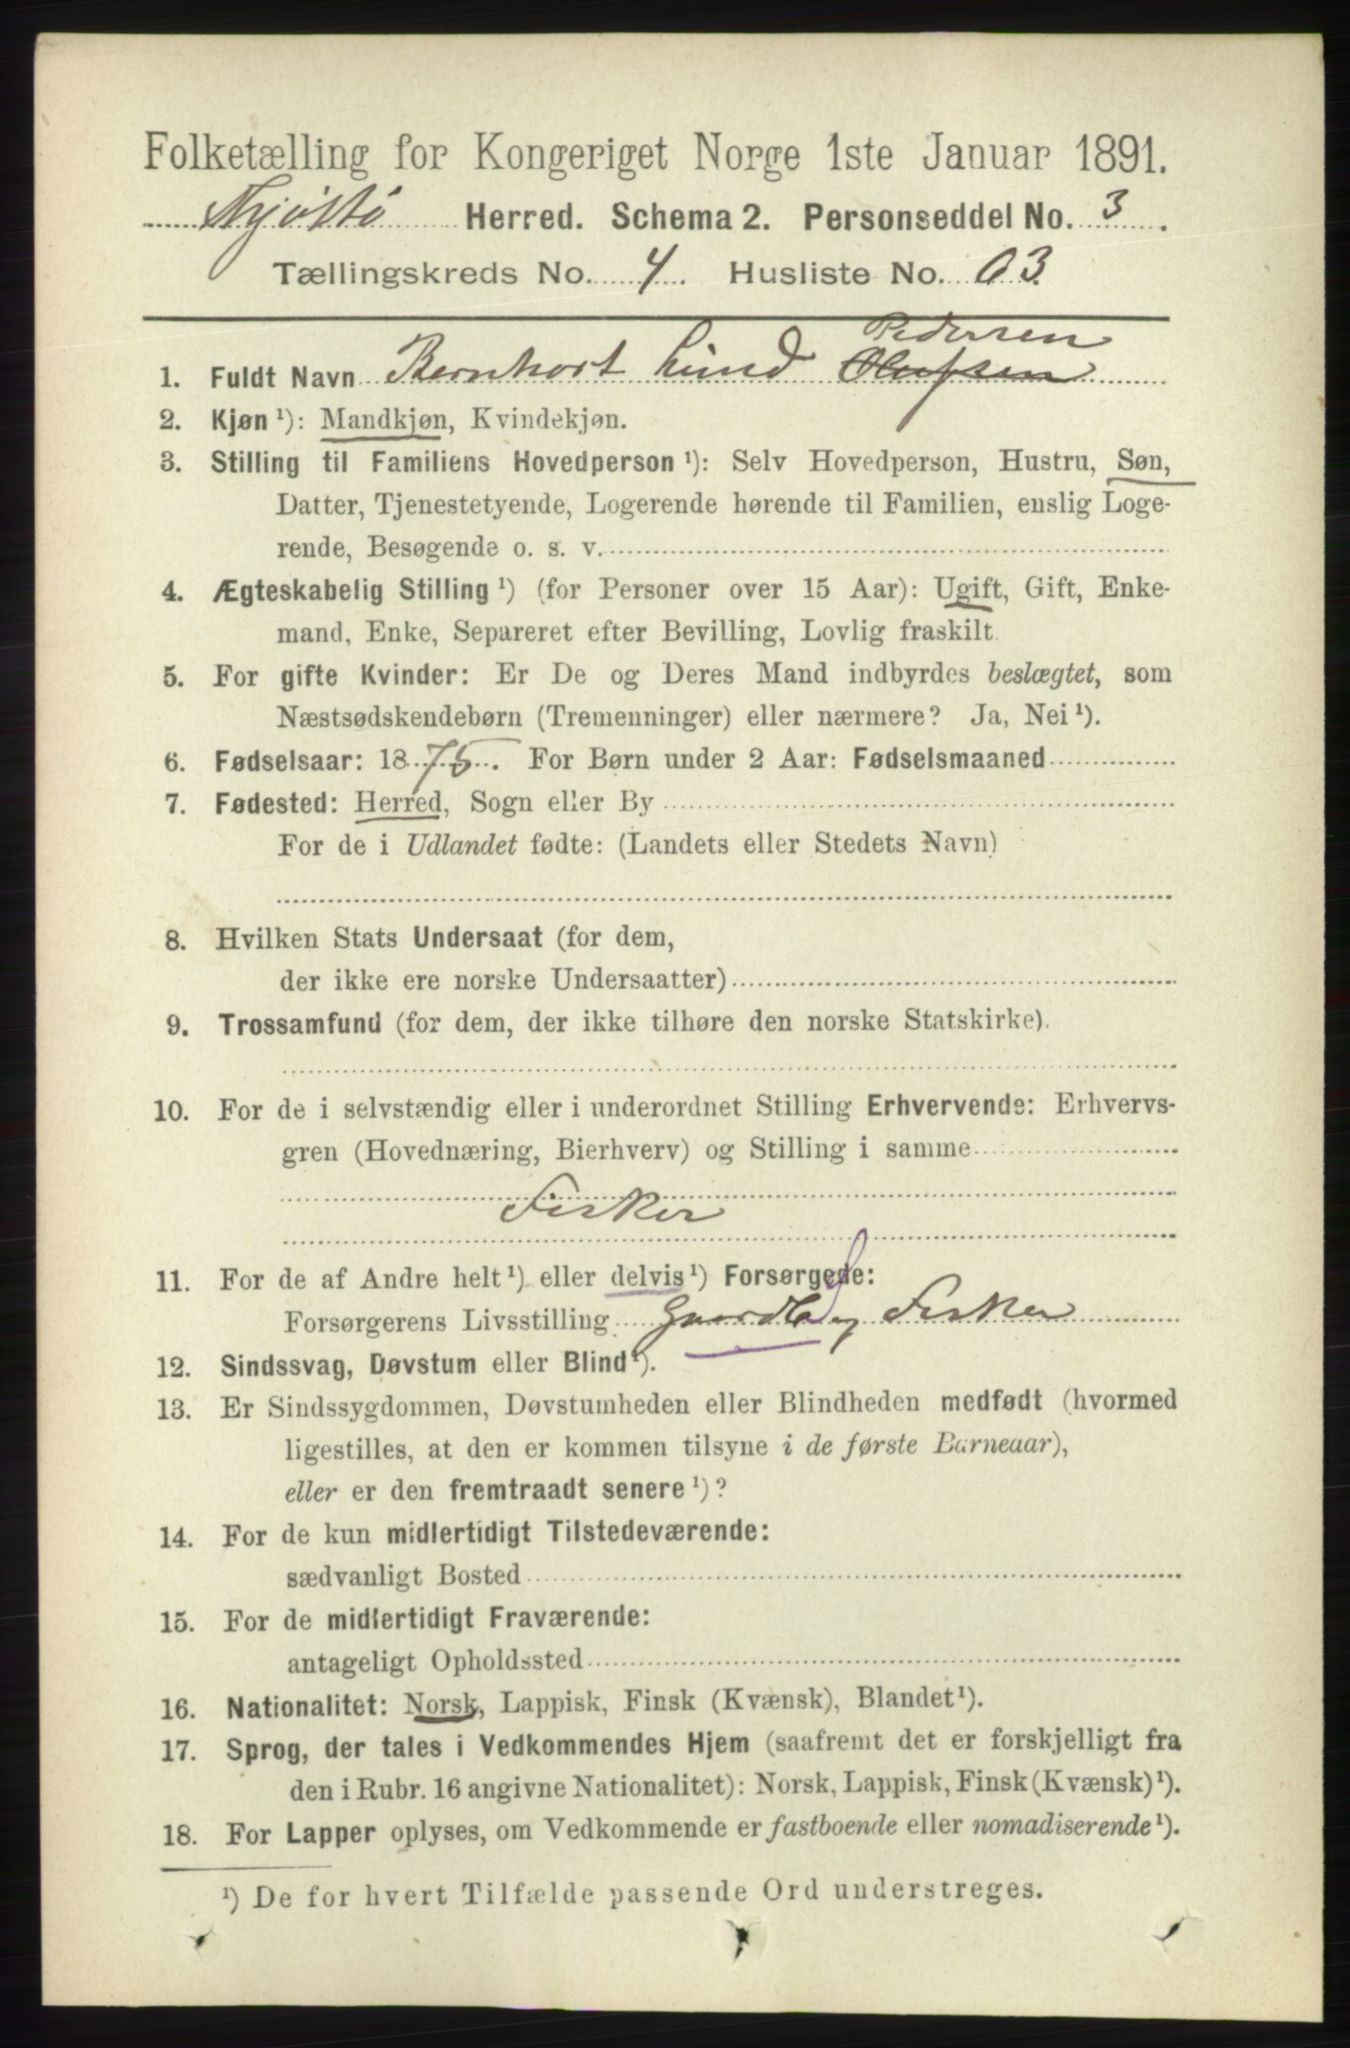 Folketælling for Kongeriget Norge 1ste Januar 1891.
Hjøltø Herred. Schema 2. Personseddel No. 3.
Tællingskreds No. 4. Husliste No. 03.
Pedersen
1. Fuldt Navn Bernhort Lund Olufsen
2. Kjøn ¹): Mandkjøn, Kvindekjøn.
3. Stilling til Familiens Hovedperson ¹): Selv Hovedperson, Hustru, Søn,
Datter, Tjenestetyende, Logerende hørende til Familien, enslig Loge-
rende, Besøgende o. s. v.
4. Ægteskabelig Stilling ¹) (for Personer over 15 Aar): Ugift, Gift, Enke-
mand, Enke, Separeret efter Bevilling, Lovlig fraskilt.
5. For gifte Kvinder: Er De og Deres Mand indbyrdes beslægtet, som
Næstsødskendebørn (Tremenninger) eller nærmere? Ja, Nei ¹).
6. Fødselsaar: 1875. For Børn under 2 Aar: Fødselsmaaned
7. Fødested: Herred, Sogn eller By
For de i Udlandet fødte: (Landets eller Stedets Navn)
8. Hvilken Stats Undersaat (for dem,
der ikke ere norske Undersaatter)
9. Trossamfund (for dem, der ikke tilhøre den norske Statskirke).
10. For de i selvstændig eller i underordnet Stilling Erhvervende: Erhvervs-
gren (Hovednæring, Bierhverv) og Stilling i samme
Fisker
11. For de af Andre helt ¹) eller delvis ¹) Forsørgede:
Forsørgerens Livsstilling og Fisker
12. Sindssvag, Døvstum eller Blind ¹).
13. Er Sindssygdommen, Døvstumheden eller Blindheden medfødt (hvormed
ligestilles, at den er kommen tilsyne i de første Barneaar),
eller er den fremtraadt senere ¹)?
14. For de kun midlertidigt Tilstedeværende:
sædvanligt Bosted
15. For de midlertidigt Fraværende:
antageligt Opholdssted
16. Nationalitet: Norsk, Lappisk, Finsk (Kvænsk), Blandet ¹).
17. Sprog, der tales i Vedkommendes Hjem (saafremt det er forskjelligt fra
den i Rubr. 16 angivne Nationalitet): Norsk, Lappisk, Finsk (Kvænsk) ¹).
18. For Lapper oplyses, om Vedkommende er fastboende eller nomadiserende ¹).
¹) De for hvert Tilfælde passende Ord understreges.